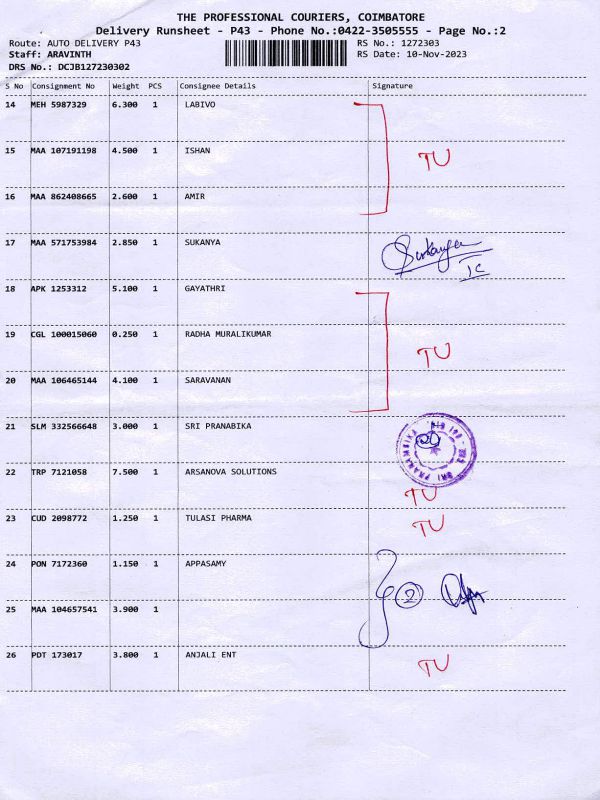 THE PROFESSIONAL COURIERS, COIMBATORE
Delivery Runsheet - P43 - Phone No.:0422-3505555 - Page No.:2
Route: AUTO DELIVERY P43 RS No.: 1272303
Staff: ARAVINTH RS Date: 10-Nov-2023
DRS No.: DCJB127230302
S No Consignment No Weight PCS Consignee Details Signature
14 MEH 5987329 6.300 1 LABIVO
15 MAA 107191198 4.500 1 ISHAN TU
16 MAA 862408665 2.600 1 AMIR
17 MAA 571753984 2.850 1 SUKANYA Sukanya
18 APK 1253312 5.100 1 GAYATHRI
19 CGL 100015060 0.250 1 RADHA MURALIKUMAR TU
20 MAA 106465144 4.100 1 SARAVANAN
21 SLM 332566648 3.000 1 SRI PRANABIKA
22 TRP 7121058 7.500 1 ARSANOVA SOLUTIONS TU
23 CUD 2098772 1.250 1 TULASI PHARMA TU
24 PON 7172360 1.150 1 APPASAMY 2
25 MAA 104657541 3.900 1
26 PDT 173017 3.800 1 ANJALI ENT TU